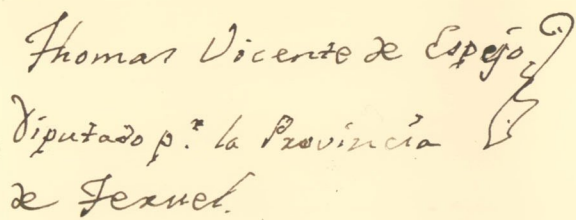 Thomas Vicente de Espejo
Diputado p.r la Provincia
de Teruel.